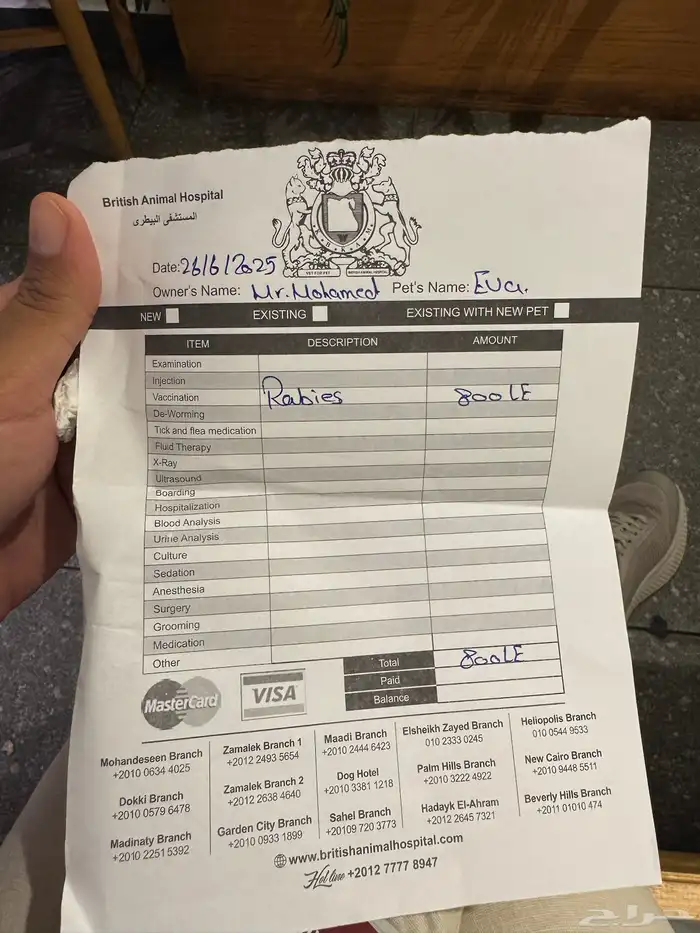 British Animal Hospital
المستشفى البيطرى
VET FOR PET
BRITISH ANIMAL HOSPITAL
Date: 26/6/2025
Owner's Name: Mr. Mohamed Pet's Name: Eva.
NEW EXISTING EXISTING WITH NEW PET
ITEM DESCRIPTION AMOUNT
Examination
Injection
Vaccination Rabies 800 LE
De-Worming
Tick and flea medication
Fluid Therapy
X-Ray
Ultrasound
Boarding
Hospitalization
Blood Analysis
Urine Analysis
Culture
Sedation
Anesthesia
Surgery
Grooming
Medication
Other
Total 800 LE
Paid
Balance
MasterCard VISA
Mohandeseen Branch
+2010 0634 4025
Dokki Branch
+2010 0579 6478
Madinaty Branch
+2010 2251 5392
Zamalek Branch 1
+2012 2493 5654
Zamalek Branch 2
+2012 2638 4640
Garden City Branch
+2010 0933 1899
Maadi Branch
+2010 2444 6423
Dog Hotel
+2010 3381 1218
Sahel Branch
+20109 720 3773
Elsheikh Zayed Branch
010 2333 0245
Palm Hills Branch
+2010 3222 4922
Hadayk El-Ahram
+2012 2645 7321
Heliopolis Branch
010 0544 9533
New Cairo Branch
+2010 9448 5511
Beverly Hills Branch
+2011 01010 474
www.britishanimalhospital.com
Hot line +2012 7777 8947
حراج